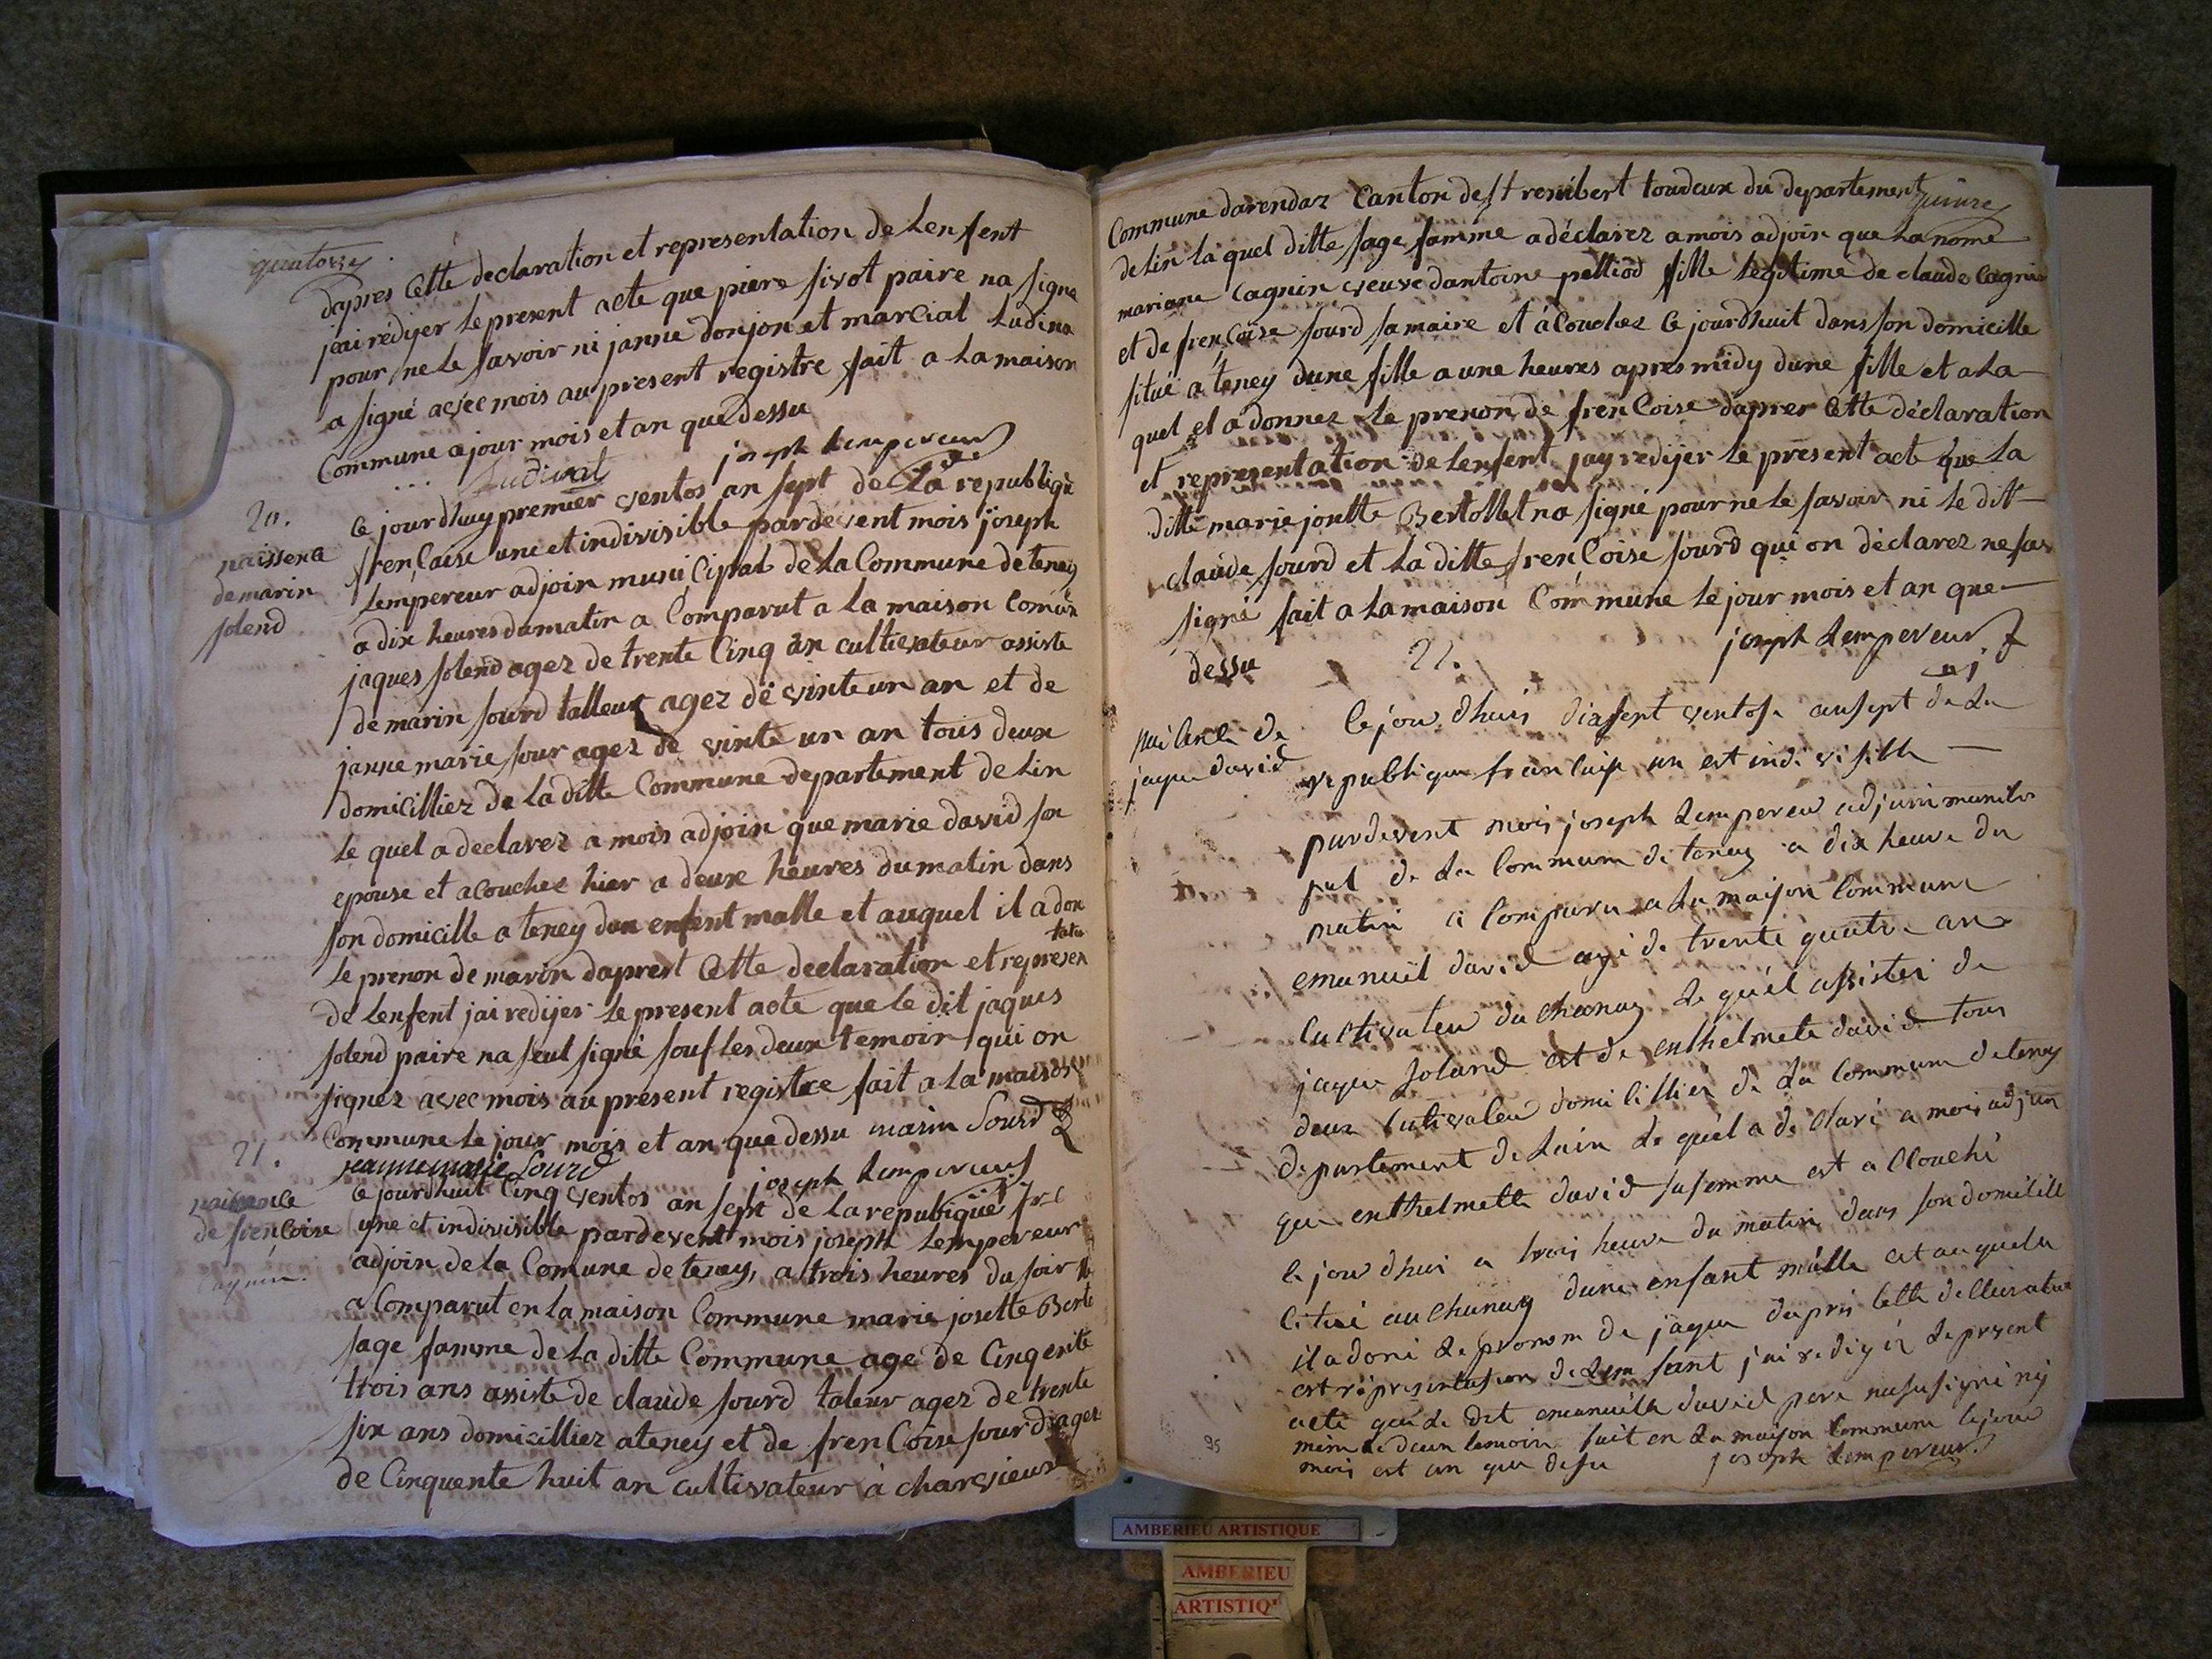 quatorze
dapres Cette declaration et representation de Lenfent
jai rédijer le present acte que piere sivot paire na signe
pour ne le savoir ni janne donjon et marcial Ludina
a signé avec mois au present registre fait a La maison
Commune a jour mois et an que dessu
Ludinat joseph Lempereur
20.
naissence
de marin
solend
Ce jourdhuy premier ventos an sept de La republiqu
frencaise une et indivisible pardevent mois joseph
Lempereur adjoin municipal de La Commune de teney
a dix heures dumatin a Comparut a la maison Comun
jaques solend agez de trente Cinq an cultivateur assiste
de marin sourd talleur agez de vinte un an et de
janne marie sour agez de vinte un an tous deux
domicilliez de La ditte Commune departement de Lin
le quel a declarez a mois adjoin que marie david son
epouse et acouchez hier a deux heures du matin dans
son domicille a teney dun enfent malle et auquel il a don
le prenon de marin daprest Cette declaration et represen
tatio
de Lenfent jai redijer le present acte que le dit jaques
solend paire na seul signé souf les deux temoir qui on
signez avec mois au present registre fait a la maison
Commune le jour mois et an que dessu marin Sourd
jeanne marie Sourd
joseph Lempereur
21.
naissance
de frencoise
Cagnin.
Ce jourdhuit Cinq ventos an sept de la republique frc
une et indivisible pardevent mois joseph Lempereur
adjoin de la Comune de tenay, a trois heures du soir
a Comparut en la maison Commune marie josette Berto
sage famme de La ditte Commune age de Cinqente
trois ans assiste de claude sourd taleur agez de trente
six ans domicilliez a teney et de frenCoise sourd agez
de Cinquente huit an cultivateur à charvieux
quinze
Commune darendaz Canton de st renibert toudeux du departement
de Lin La quel ditte sage famme a déclarez a mois adjoin que La nomé
mariane Cagnin veuve dantoine pelliod fille legitime de claude Cagnin
et de frencoise sourd sa maire et àcouchez Ce jourdhuit dans son domicille
situé a teney dune fille a une heures apres midy dune fille et a La
quel el a donnez le prenon de frenCoise daprer Cette déclaration
et representation de Lenfent jay redijer le present acte que La
ditte marie josette Bertollet na signé pour ne le savoir ni le dit
claude sourd et La ditte frenCoise sourd qui on déclarez ne sav
signé fait a La maison Commune le jour mois et an que
dessu
joseph Lempereur
adj.
22.
naisance de
jaque david
Ce jour dhuis dix sept ventose an sept de La
republique francaise un est indivisible
pardevent mois joseph Lempereur adjoin munici
pal de La Commune de tenay a dix heure du
matin a Comparu a La maison Commune
emanuël david agé de trente quatre an
Cultivateu du chanay Le quel assistéz de
jaque soland et de enthelmete david tous
deux Cultivateu domicilliés de La Commune de tenay
departement de Lain Le quel a declaré a mois adjoin
que enthelmette david sa femme est acCouché
Ce jour dhui a trois heure du matin dans son domicille
Citué au chanay dune enfant málle est au quelu
il a doné Le pronom de jaque dapris Cette declleration
est réprisentasion de Lemfant jai redigér Le present
acte que Le dit emanuëlle david pere na su signé ny
mém Le deux temoin fait en La maison Commune Le jour
mois est an que desu joseph Lempereur.
95
AMBERIEU ARTISTIQUE
AMBERIEU
ARTISTIQ